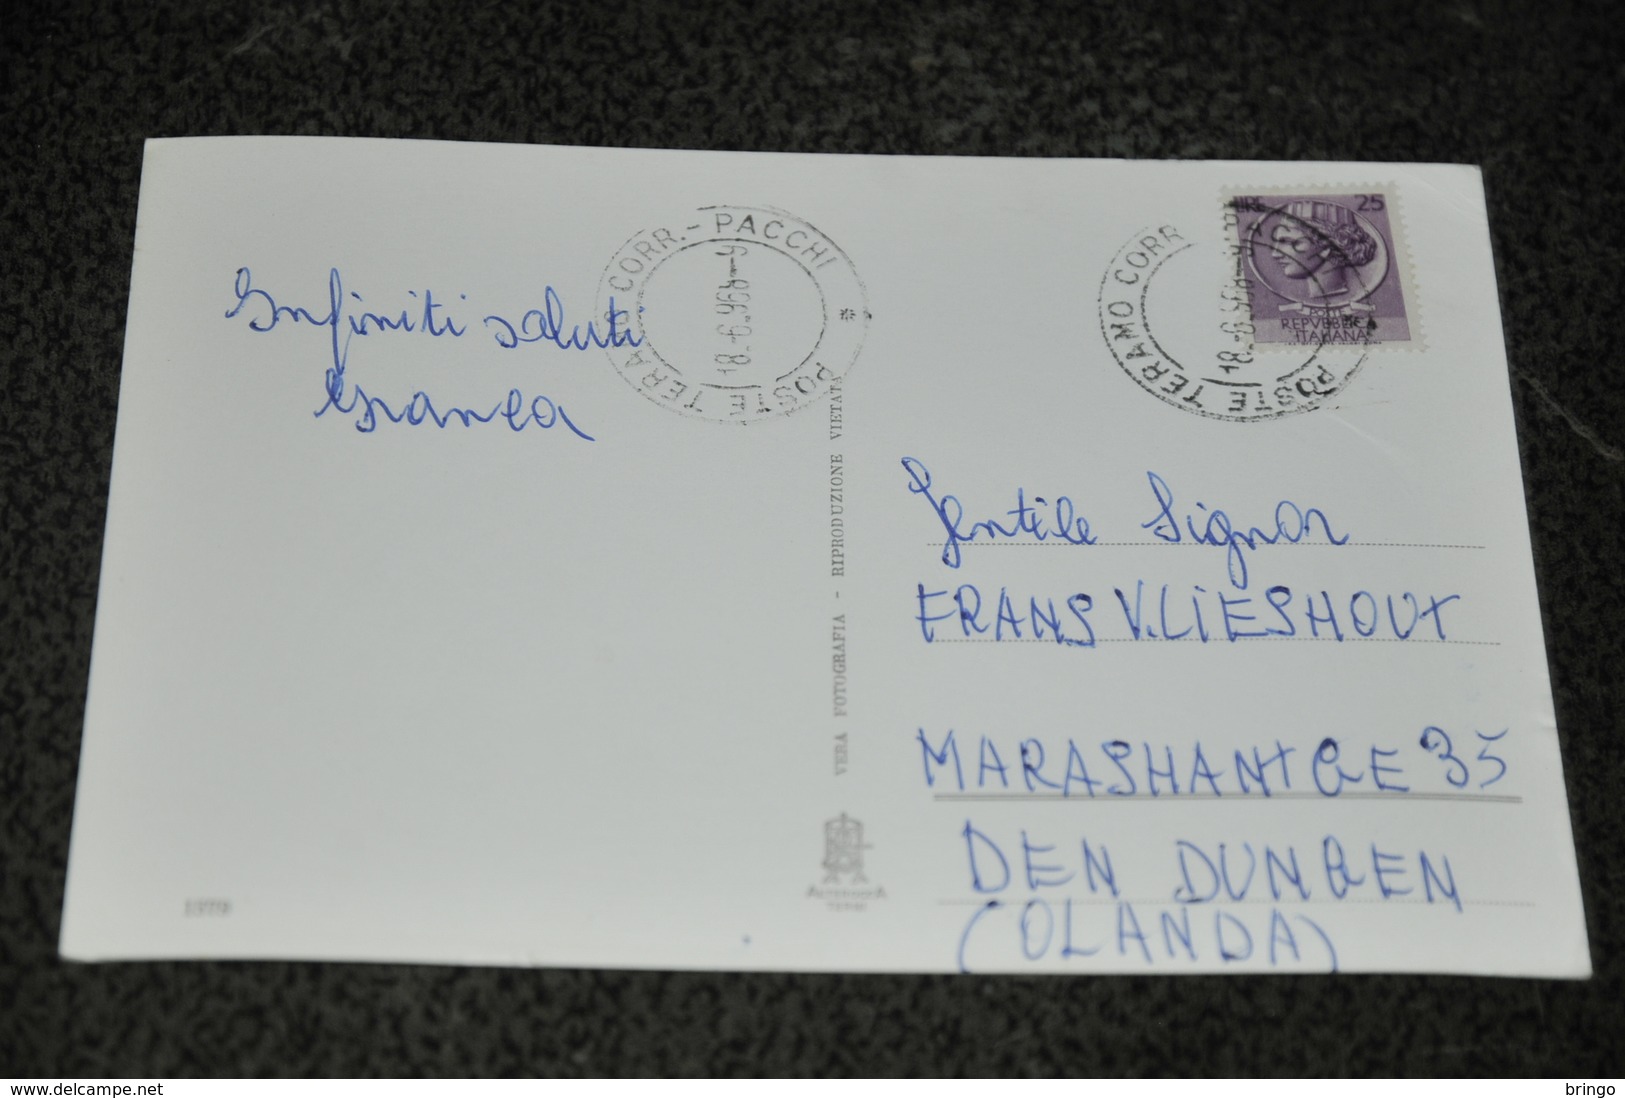 Infiniti saluti
POSTE TERAMO CORR.-PACCHI
18.-6.968-9
POSTE TERAMO CORR
18.-6.968-
LIRE 25
POSTE
REPVBBLICA
ITALIANA
Gentile Signor
FRANS V.LIESHOUT
MARASHANTGE 35
DEN DUNGEN
(OLANDA)
VERA FOTOGRAFIA - RIPRODUZIONE VIETATA
ALTEROCCA
TERNI
1379